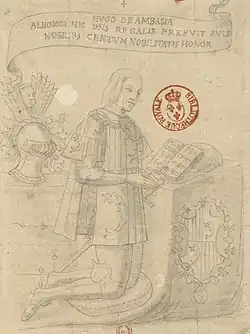 HUGO DE AMBASIA
ALBOIOCI HIC DNS REGALIS PREFVIT AVLE
NOBILIBS CENTVM NOBILITATIS HONOR
BIBLIOTHEQUE ROYALE